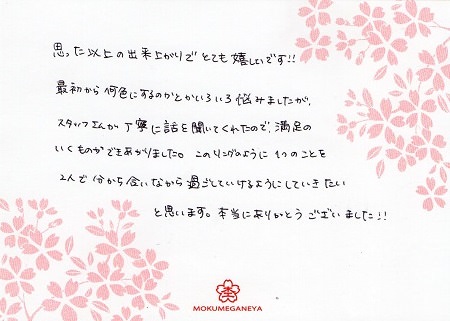 思った以上の出来上がりでとても嬉しいです!!
最初から何色にするのかとかいろいろ悩みましたが、
スタッフさんが丁寧に話を聞いてくれたので、満足の
いくものができあがりました。このリングのように1つのことを
2人で分から合いながら過ごしていけるようにしていきたい
と思います。本当にありがとうございました!!
MOKUMEGANEYA